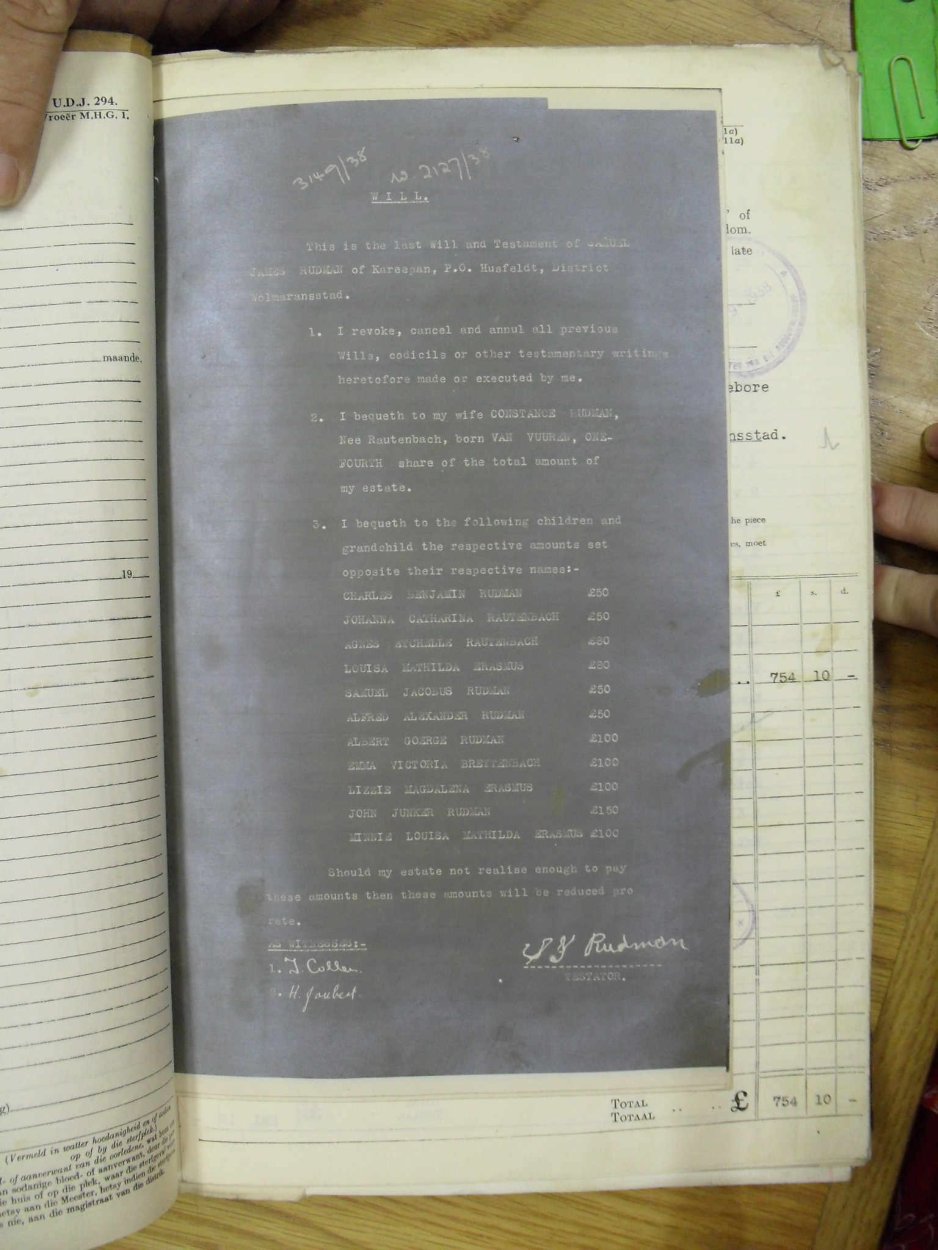 U.D.J. 294.
Vroeër M.H.G. I.
maande,
19
(Vermeld in watter hoedanigheid en of
op of by die sterfplek)
of aanverwant van die oorledene, wat
sodanige bloed- of aanverwant, deur die
huis of op die plek, waar die sterfgeval
aan die Meester, hetsy indien die
nie, aan die magistraat van die distrik.
3149/38 no 2127/38
WILL.
This is the last Will and Testament of SAMUEL
JAMES RUDMAN of Kareepan, P.O. Husfeldt, District
Wolmaransstad.
1. I revoke, cancel and annul all previous
Wills, codicils or other testamentary writings
heretofore made or executed by me.
2. I bequeth to my wife CONSTANCE RUDMAN,
Nee Rautenbach, born VAN VUUREN, ONE-
FOURTH share of the total amount of
my estate.
3. I bequeth to the following children and
grandchild the respective amounts set
opposite their respective names:-
CHARLES BENJAMIN RUDMAN £50
JOHANNA CATHARINA RAUTENBACH £50
AGNES RAUTENBACH £80
LOUISA MATHILDA ERASMUS £80
SAMUEL JACOBUS RUDMAN £50
ALFRED ALEXANDER RUDMAN £50
ALBERT GOERGE RUDMAN £100
EMMA VICTORIA BREYTENBACH £100
LIZZIE MAGDALENA ERASMUS £100
JOHN JUNKER RUDMAN £150
MINNIE LOUISA MATHILDA ERASMUS £100
Should my estate not realise enough to pay
these amounts then these amounts will be reduced pro
rate.
AS WITNESSES:-
1. J. Collen
2. H. Joubert
S J Rudman
TESTATOR.
1a)
11a)
of
dom.
late
ebore
nsstad.
he piece
es, moet
£ s. d.
.. 754 10 -
TOTAL
TOTAAL .. .. £ 754 10 -